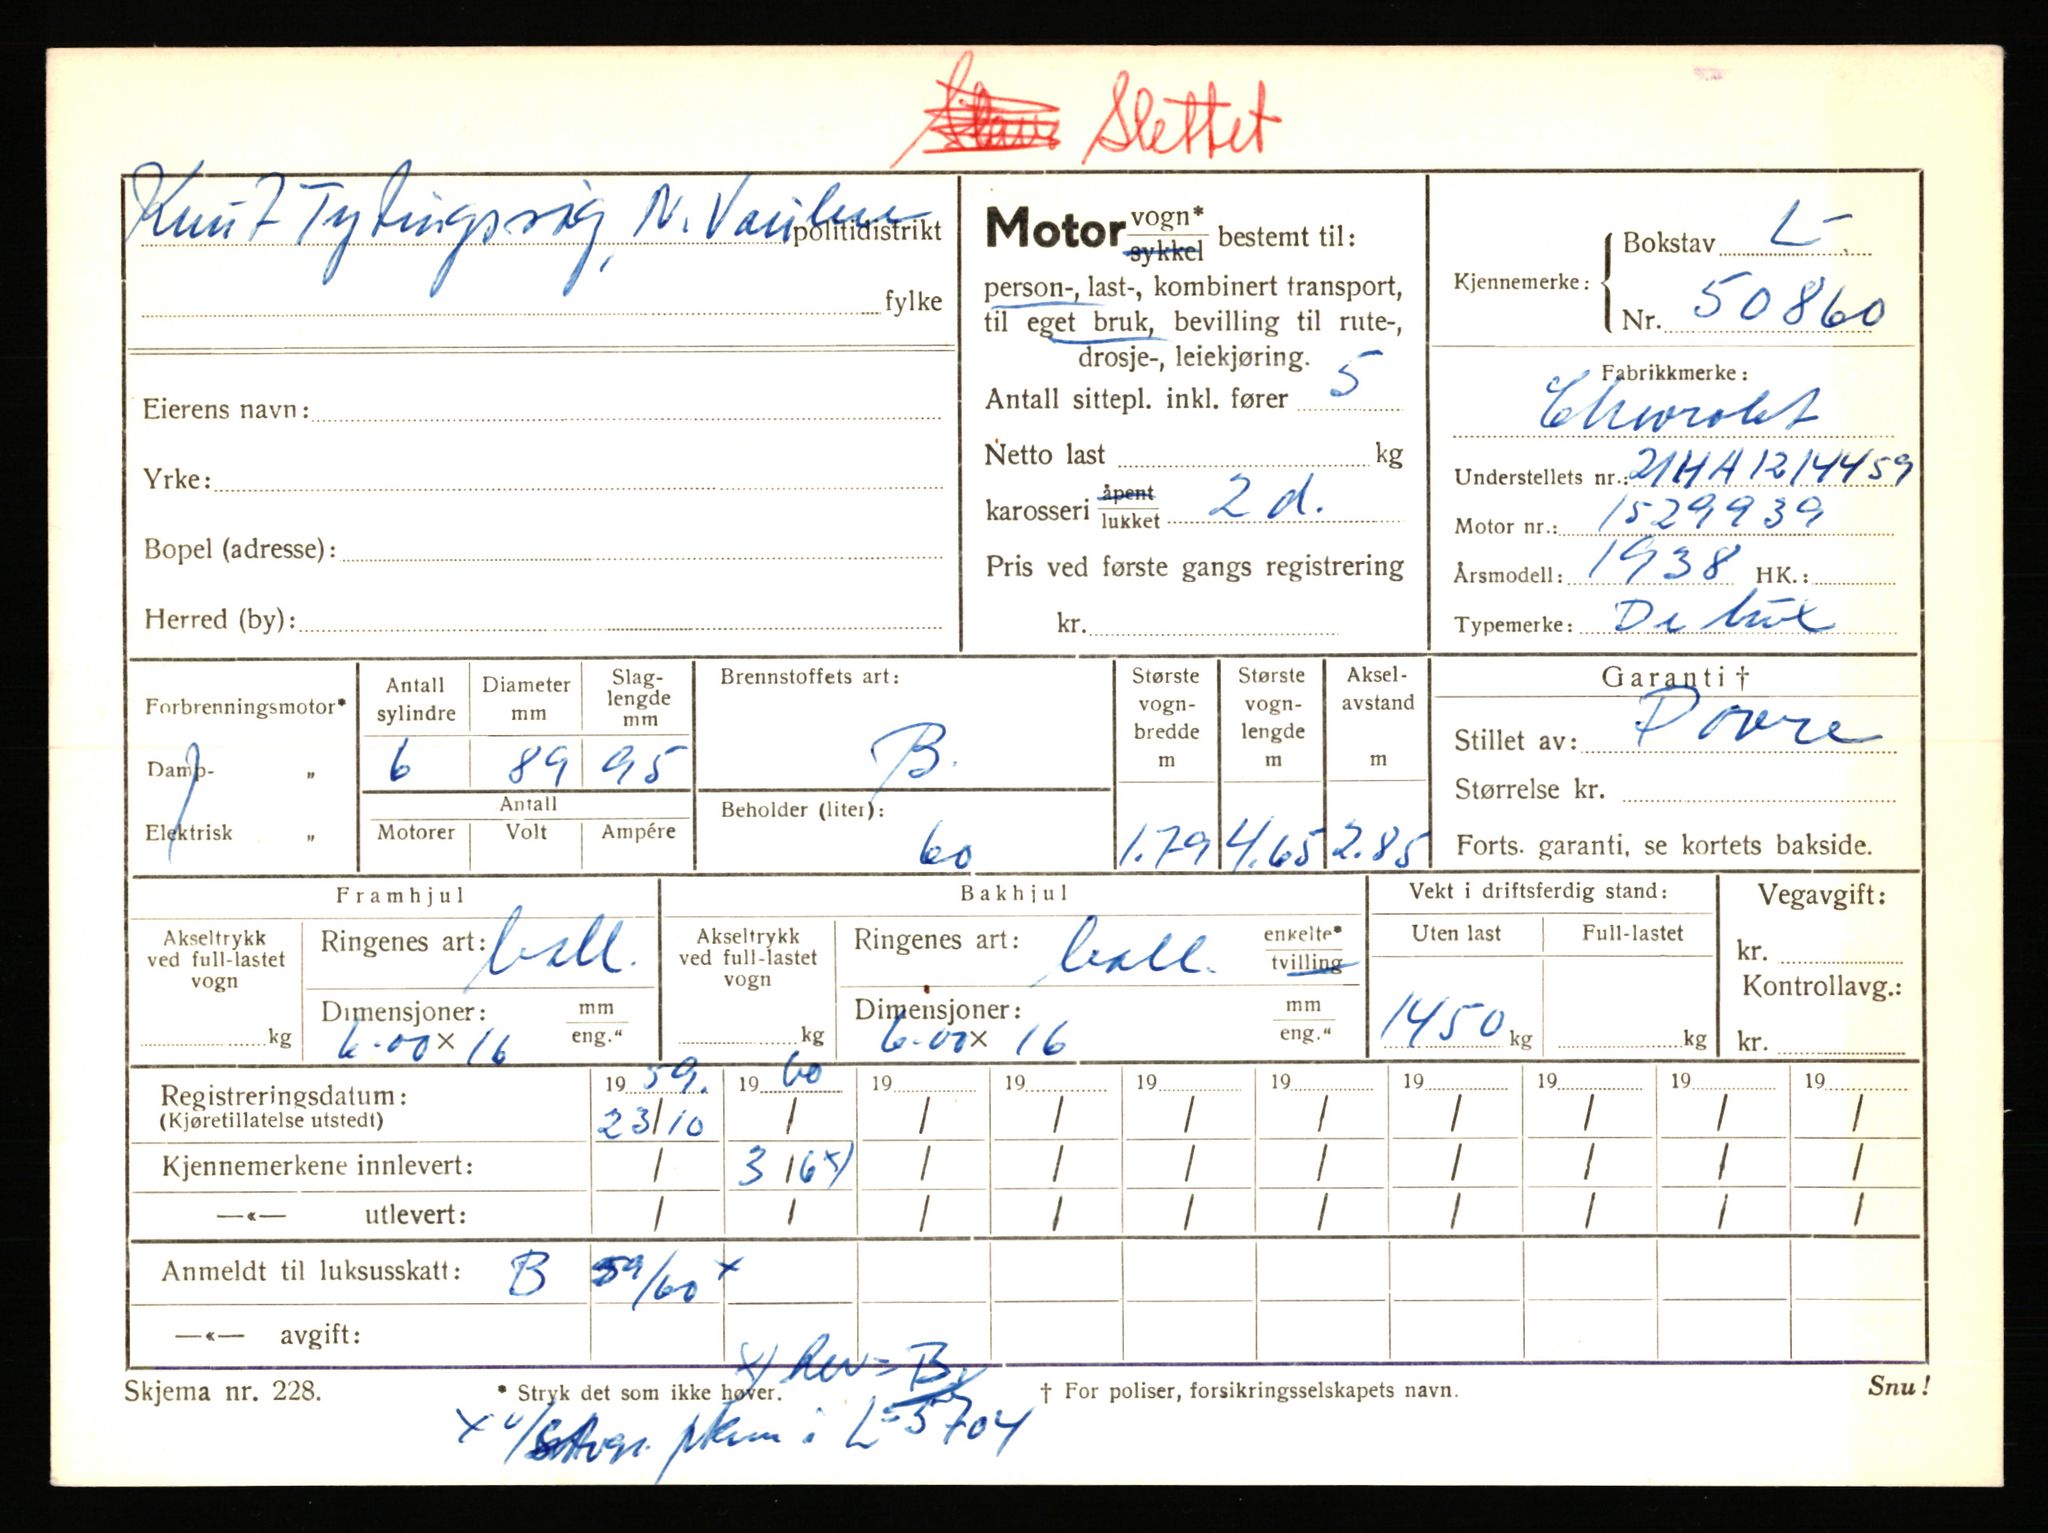 Slettet
Knut Tytingsvåg, N. Varhau politidistrikt
fylke
Eierens navn:
Yrke:
Bopel (adresse):
Herred (by):
Motor vogn*
sykkel bestemt til:
person-, last-, kombinert transport,
til eget bruk, bevilling til rute-,
drosje-, leiekjøring.
Antall sittepl. inkl. fører 5
Netto last kg
karosseri åpent
lukket 2 d.
Pris ved første gangs registrering
kr.
Kjennemerke: Bokstav L-
Nr. 50860
Fabrikkmerke:
Chevrolet
Understellets nr.: 21HA1214459
Motor nr.: 1529939
Årsmodell: 1938 HK.:
Typemerke: De lux
Forbrenningsmotor*
Damp- „
Elektrisk „
Antall sylindre 6
Diameter mm 89
Slag-lengde mm 95
Antall
Motorer Volt Ampére
Brennstoffets art:
B.
Beholder (liter):
60
Største vogn-bredde m 1.79
Største vogn-lengde m 4.65
Aksel-avstand m 2.85
Garanti †
Stillet av: Dovre
Størrelse kr.
Forts. garanti, se kortets bakside.
Framhjul
Akseltrykk ved full-lastet vogn
kg
Ringenes art: ball.
Dimensjoner: mm
eng."
6.00 × 16
Bakhjul
Akseltrykk ved full-lastet vogn
kg
Ringenes art: ball. enkelte*
tvilling
Dimensjoner: mm
eng."
6.00 × 16
Vekt i driftsferdig stand:
Uten last Full-lastet
1450 kg kg
Vegavgift:
kr.
Kontrollavg.:
kr.
Registreringsdatum: 19 59. 19 60 19 19 19 19 19 19 19 19
(Kjøretillatelse utstedt) 23/10 / / / / / / / / /
Kjennemerkene innlevert: / 3/6 x) / / / / / / / /
—«— utlevert: / / / / / / / / / /
Anmeldt til luksusskatt: B 59/60 x
—«— avgift:
x) Rev = B.
Skjema nr. 228. * Stryk det som ikke høver. † For poliser, forsikringsselskapets navn. Snu!
x i L-5704